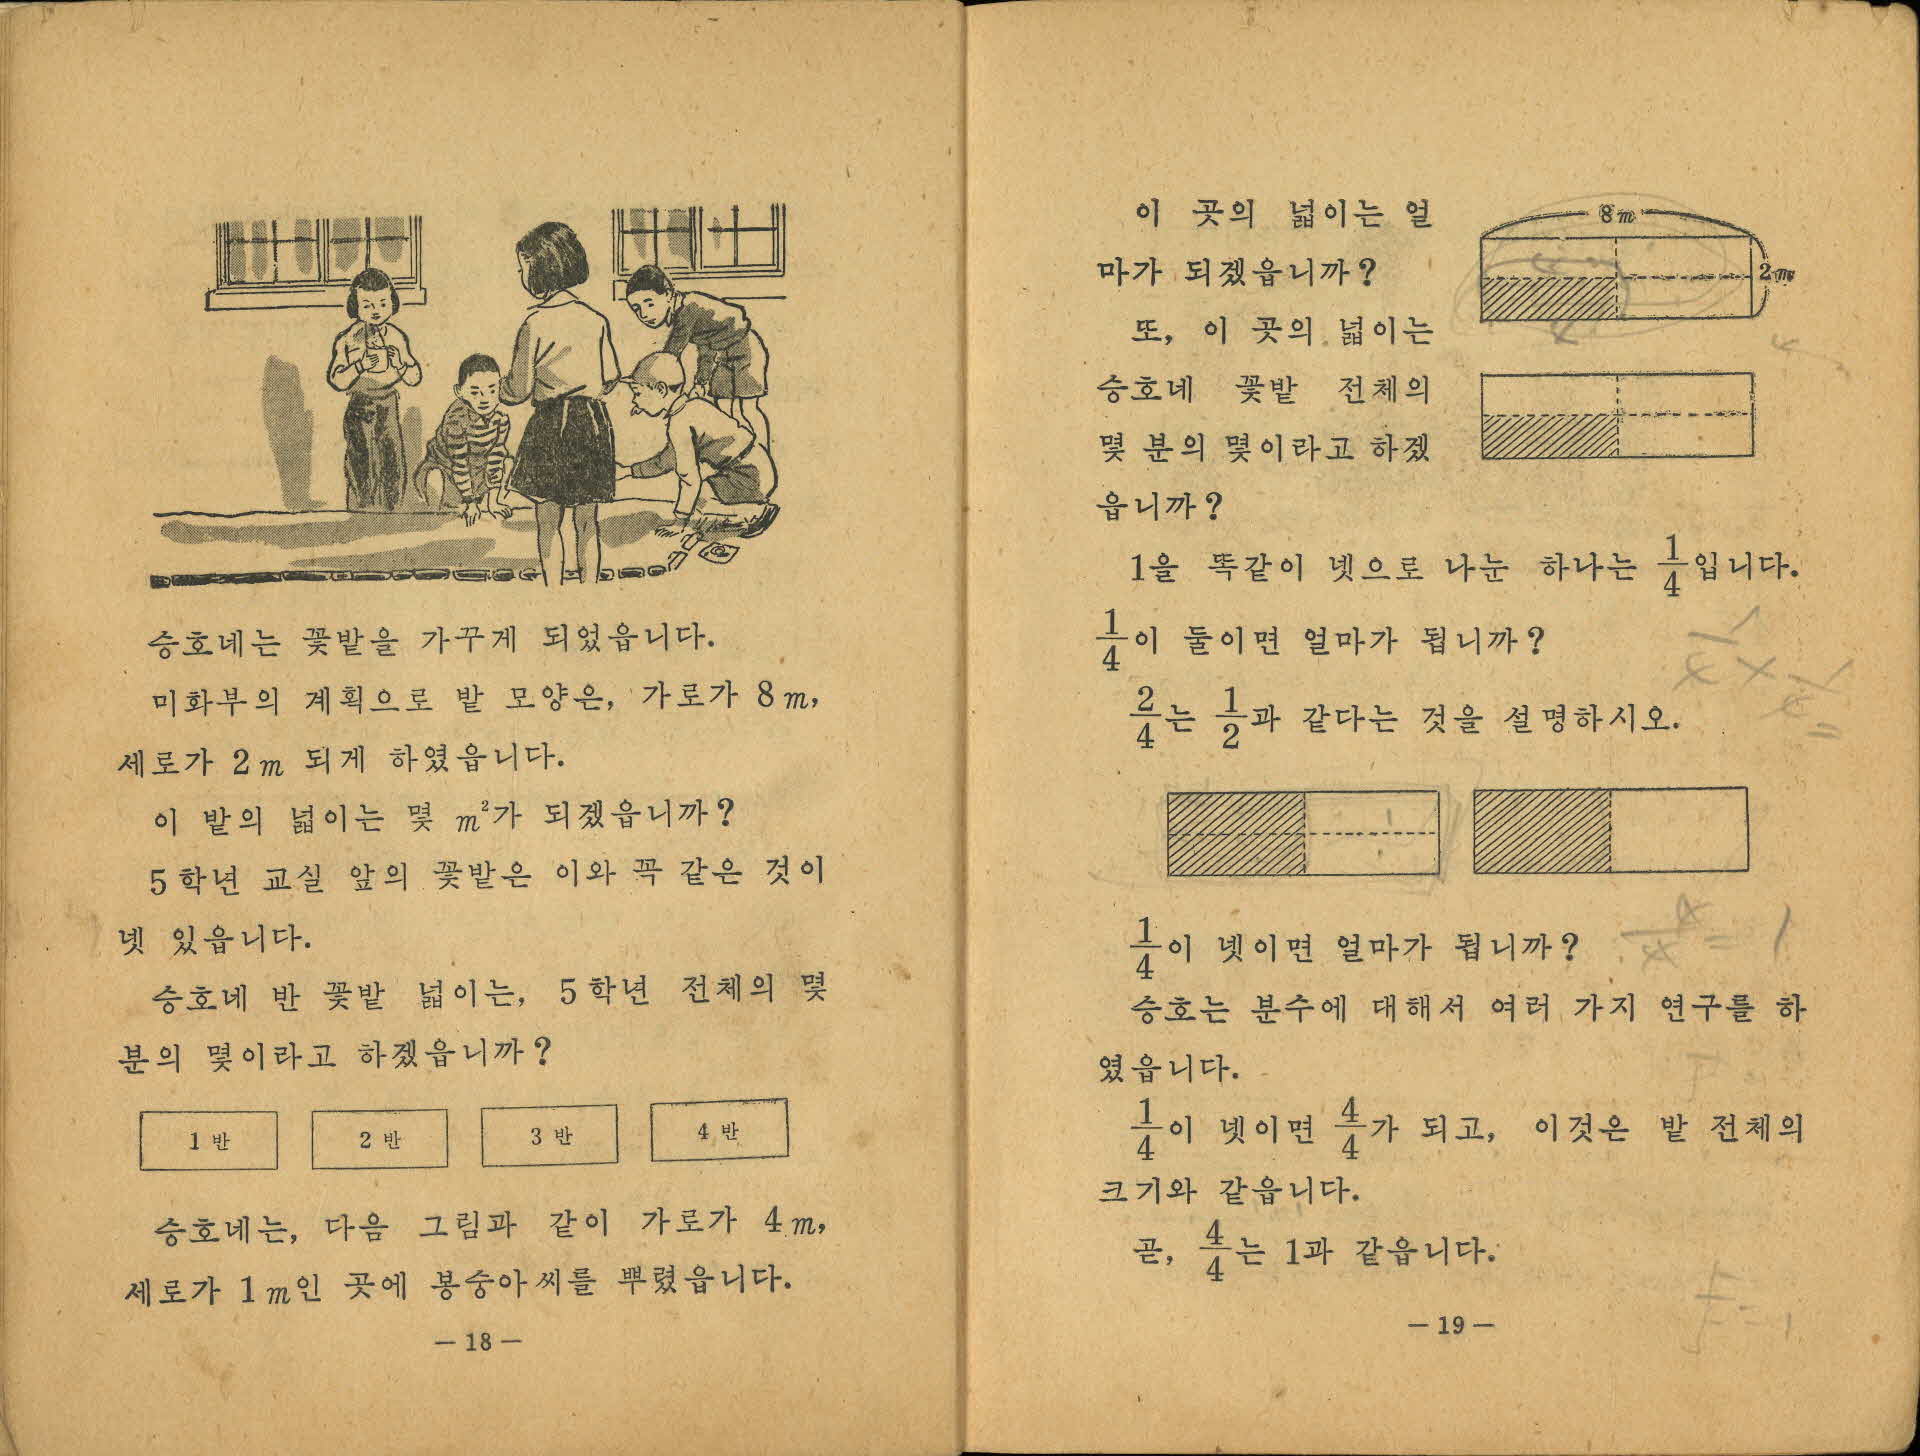 승호네는 꽃밭을 가꾸게 되었읍니다.
미화부의 계획으로 밭 모양은, 가로가 8m,
세로가 2m 되게 하였읍니다.
이 밭의 넓이는 몇 m²가 되겠읍니까?
5학년 교실 앞의 꽃밭은 이와 꼭 같은 것이
넷 있읍니다.
승호네 반 꽃밭 넓이는, 5학년 전체의 몇
분의 몇이라고 하겠읍니까?
1반 2반 3반 4반
승호네는, 다음 그림과 같이 가로가 4m,
세로가 1m인 곳에 봉숭아씨를 뿌렸읍니다.
— 18 —
이 곳의 넓이는 얼
마가 되겠읍니까?
또, 이 곳의 넓이는
승호네 꽃밭 전체의
몇 분의 몇이라고 하겠
읍니까?
8m
2m
1을 똑같이 넷으로 나눈 하나는 1/4입니다.
1/4이 둘이면 얼마가 됩니까?
2/4는 1/2과 같다는 것을 설명하시오.
1/4이 넷이면 얼마가 됩니까?
승호는 분수에 대해서 여러 가지 연구를 하
였읍니다.
1/4이 넷이면 4/4가 되고, 이것은 밭 전체의
크기와 같읍니다.
곧, 4/4는 1과 같읍니다.
— 19 —